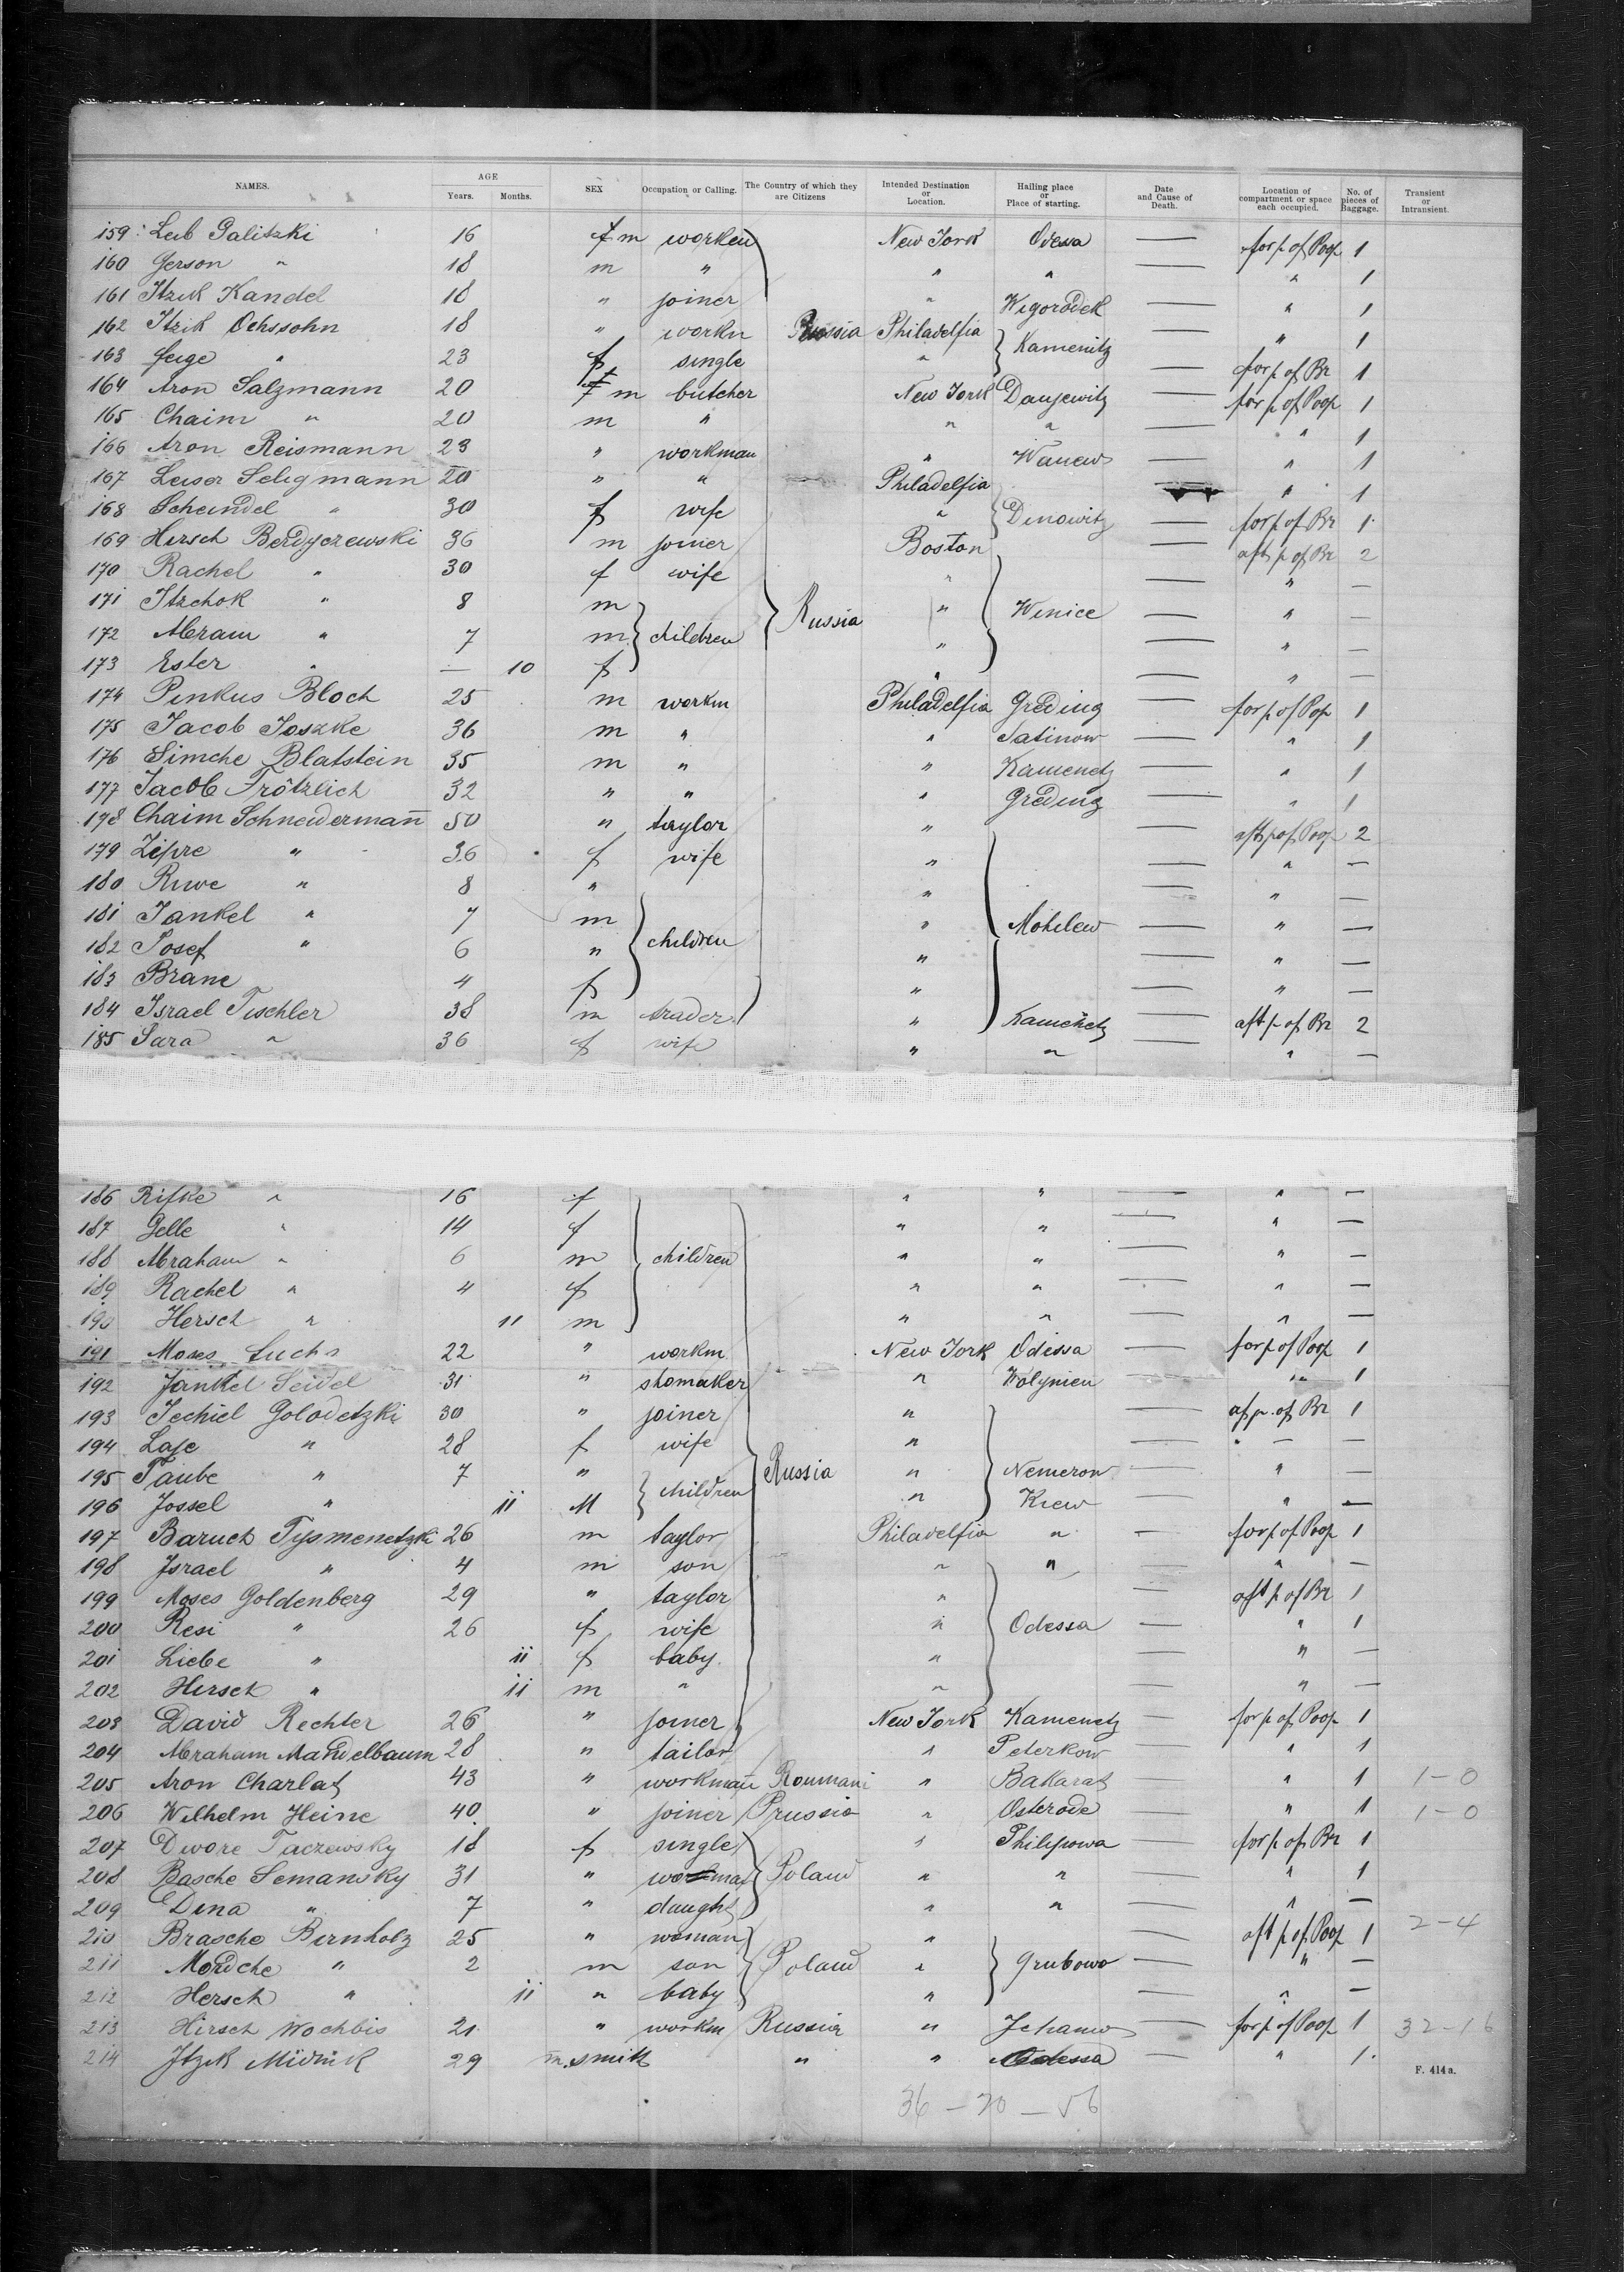 NAMES. AGE Years. Months. SEX Occupation or Calling. The Country of which they are Citizens Intended Destination or Location. Hailing place or Place of starting. Date and Cause of Death. Location of compartment or space each occupied. No. of pieces of Baggage. Transient or Intransient.
159 Leib Galitzki 16 f m worken New York Odessa — for p of Poop 1
160 Gerson " 18 m " " " — " 1
161 Itzik Kandel 18 " joiner " Wigorodek — " 1
162 Itzik Ochssohn 18 " workn Russia Philadelfia Kamenitz — " 1
163 feige " 23 f single " — for p of Br 1
164 Aron Salzmann 20 f m butcher New York — for p of Poop 1
165 Chaim " 20 m " " " — " 1
166 Aron Reismann 23 " workman " Wanew — " 1
167 Leiser Seligmann 20 " " Philadelfia — " 1
168 Scheindel " 30 f wife " Dinowitz — for p of Br 1
169 Hersch Berdyczewski 36 m joiner Boston — aft p of Br 2
170 Rachel " 30 f wife " — " —
171 Itzchok " 8 m children Russia " Winice — " —
172 Abram " 7 m " — " —
173 Ester " — 10 f " — " —
174 Pinkus Bloch 25 m workm Philadelfia Greding — for p of Pop 1
175 Jacob Joszke 36 m " " Satinow — " 1
176 Simche Blatstein 35 m " " Kamenetz — " 1
177 Jacob Frötzlich 32 " " " Greding — " 1
178 Chaim Schneidermañ 50 " taylor " — aft p of Poop 2
179 Zipre " 36 f wife " — " —
180 Riwe " 8 " " — " —
181 Jankel " 7 m " Mohilew — " —
182 Josef " 6 " children " — " —
183 Brane 4 f " — " —
184 Israel Tischler 38 m trader " Kamenetz — aft p of Br 2
185 Sara " 36 f wife " " " —
186 Rifke " 16 f " " — " —
187 Gelle " 14 f " " — " —
188 Abraham " 6 m children " " — " —
189 Rachel " 4 f " " — " —
190 Hersch " 11 m " " — " —
191 Moses Fuchs 22 " workm New York Odessa — for p of Poop 1
192 Jankel Seidel 31 " shomaker " Wolynien — " 1
193 Jechiel Golodetzki 30 " joiner " — af p. of Br 1
194 Laje " 28 f wife " — " — —
195 Taube " 7 " children Russia " Nemerow — " —
196 Jossel " 11 M " Kiew — " —
197 Baruch Tysmenetzki 26 m taylor Philadelfia " — for p of Poop 1
198 Israel " 4 m son " " — " —
199 Moses Goldenberg 29 " taylor " — aft p of Br 1
200 Resi " 26 f wife " Odessa — " 1
201 Liebe " 11 f baby. " — " —
202 Hersch " 11 m " " — " —
203 David Rechter 26 " joiner New York Kamenetz — for p of Poop 1
204 Abraham Mandelbaum 28 " tailor " Peterkow — " 1
205 Aron Charlat 43 " workman Roumani " Bakarat — " 1 1-0
206 Wilhelm Heine 40 " joiner Prussia " Osterode — " 1 1-0
207 Dwore Taczewsky 18 f single " Philipowa — for p of Br 1
208 Basche Semansky 31 " Poland " " — " 1
209 Dina " 7 " daught " " — " —
210 Brasche Birnholz 25 " woman " — aft p of Poop 1 2-4
211 Mordche " 2 m son Poland " Grubowo — " —
212 Hersch " 11 " baby " — " —
213 Hirsch Wochbis 21 " workm Russia " — for p of Poop 1 32-16
214 Itzik Midnik 29 m. smith " " Odessa — " 1
F. 414a.
36 - 20 - 56